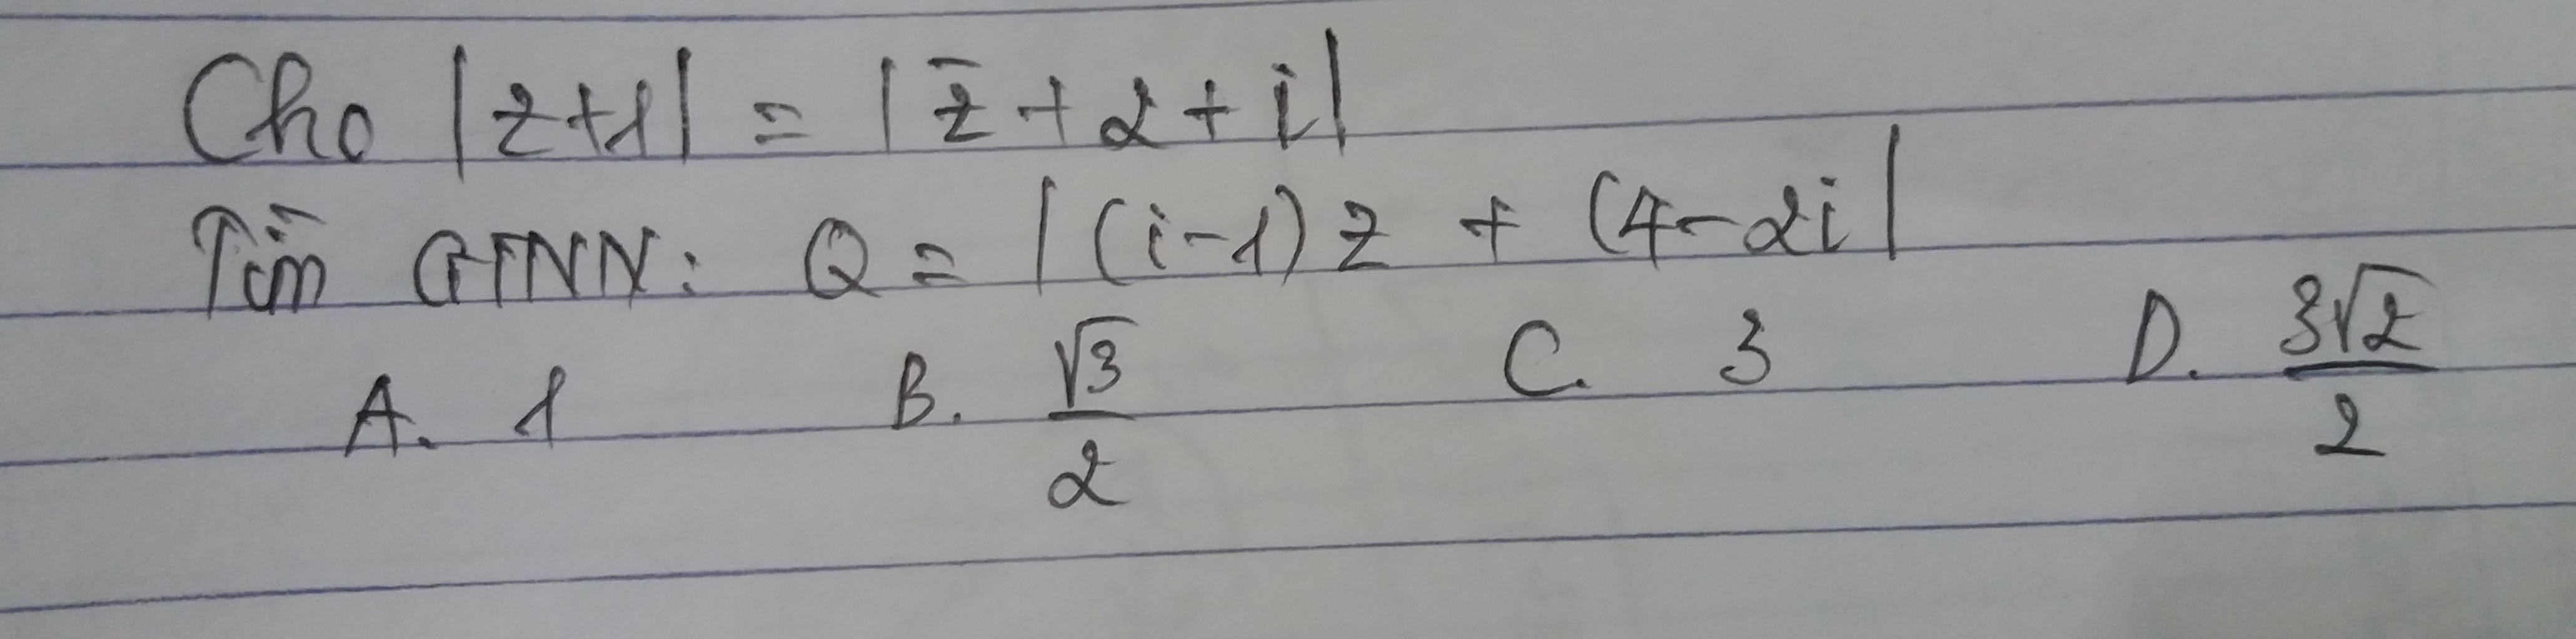 Cho |z+1| = |z̄+2+i|
Tìm GTNN: Q = |(i-1)z + (4-2i|
A. 1 B. √3/2 C. 3 D. 3√2/2